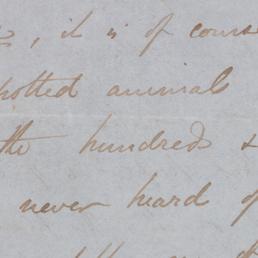 , it is of cours
spotted animals
the hundreds &
never heard of